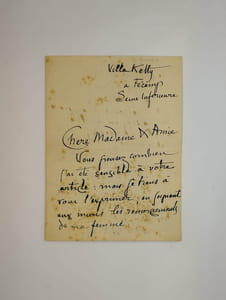 Villa Ketty
à Fécamp
Seine Inférieure
Chère Madame & Amie
Vous pensez combien
j'ai été sensible à votre
article : mais je tiens à
vous l'exprimer, en joignant
aux miens les remerciements
de ma femme.